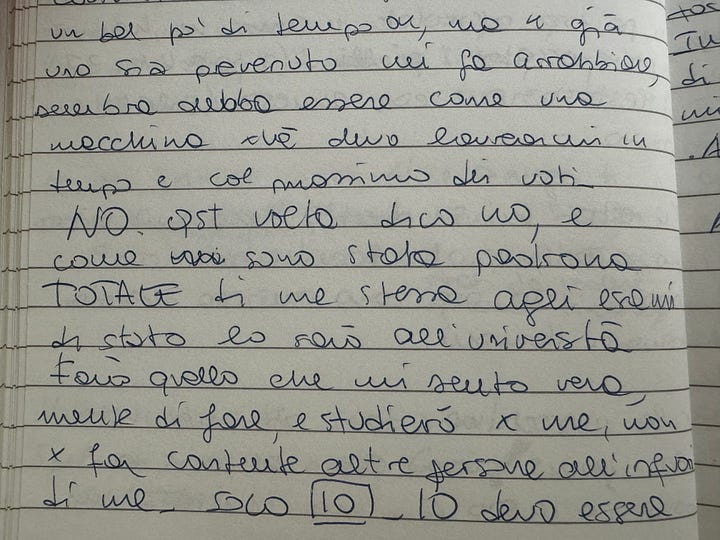 un bel po' di tempo ok, ma se già
uno sia prevenuto mi fa arrabbiare,
sembra debba essere come una
macchina xkè devo laurearmi in
tempo e col massimo dei voti_
NO. qst volta dico no, e
come sono stata padrona
TOTALE di me stessa agli esami
di stato lo sarò all'università
Farò quello che mi sento vera,
mente di fare, e studierò x me, non
x far contente altre persone all'infuori
di me_ SOLO IO_ IO devo essere
tos
Tu
di
mi
.A